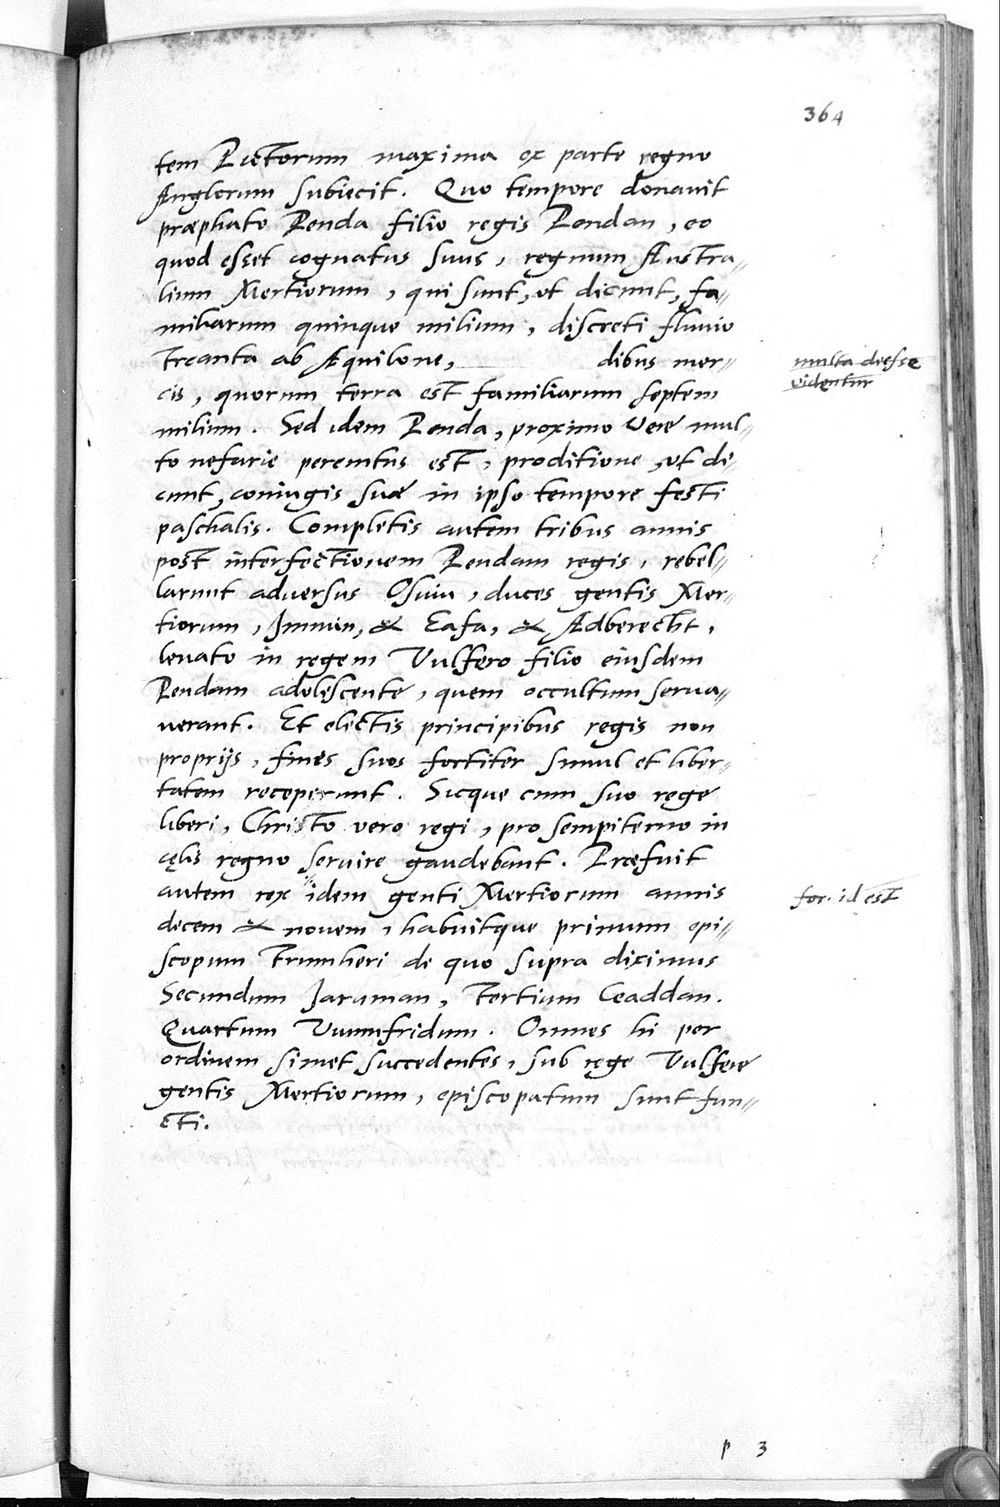 364
tem Pictorum maxima ex parte regno
Anglorum subiecit. Quo tempore donauit
præphato Penda filio regis Pendan, eo
quod esset cognatus suus, regnum Austra„
lium Mertiorum, qui sunt, ut dicunt, fa„
miliarum quinque milium, discreti fluuio
Treanta ab Aquilone, dibus mer„
multa deesse
videntur
cis, quorum terra est familiarum septem
milium. Sed idem Penda, proximo vere mul„
to nefarie peremtus est, proditione, ut di„
cunt, coniugis suæ in ipso tempore festi
paschalis. Completis autem tribus annis
post interfectionem Pendam regis, rebel„
larunt aduersus Osuiu, duces gentis Mer„
tiorum, Immin, & Eafa, & Adberecht,
leuato in regem Vulfero filio eiusdem
Pendam adolescente, quem occultum serua„
uerant. Et electis principibus regis non
proprijs, fines suos fortiter simul et liber„
tatem receperunt. Sicque cum suo rege
liberi, Christo vero regi, pro sempiterno in
cęlis regno seruire gaudebant. Præfuit
autem rex idem genti Mertiorum annis
for. id est
decem & nouem, habuitque primum epi„
scopum Trumheri de quo supra diximus
Secundum Jaruman, Tertium Ceaddan.
Quartum Vuumfridum. Omnes hi per
ordinem simet succedentes, sub rege Vulfere
gentis Mertiorum, episcopatum sunt fun„
cti.
p 3